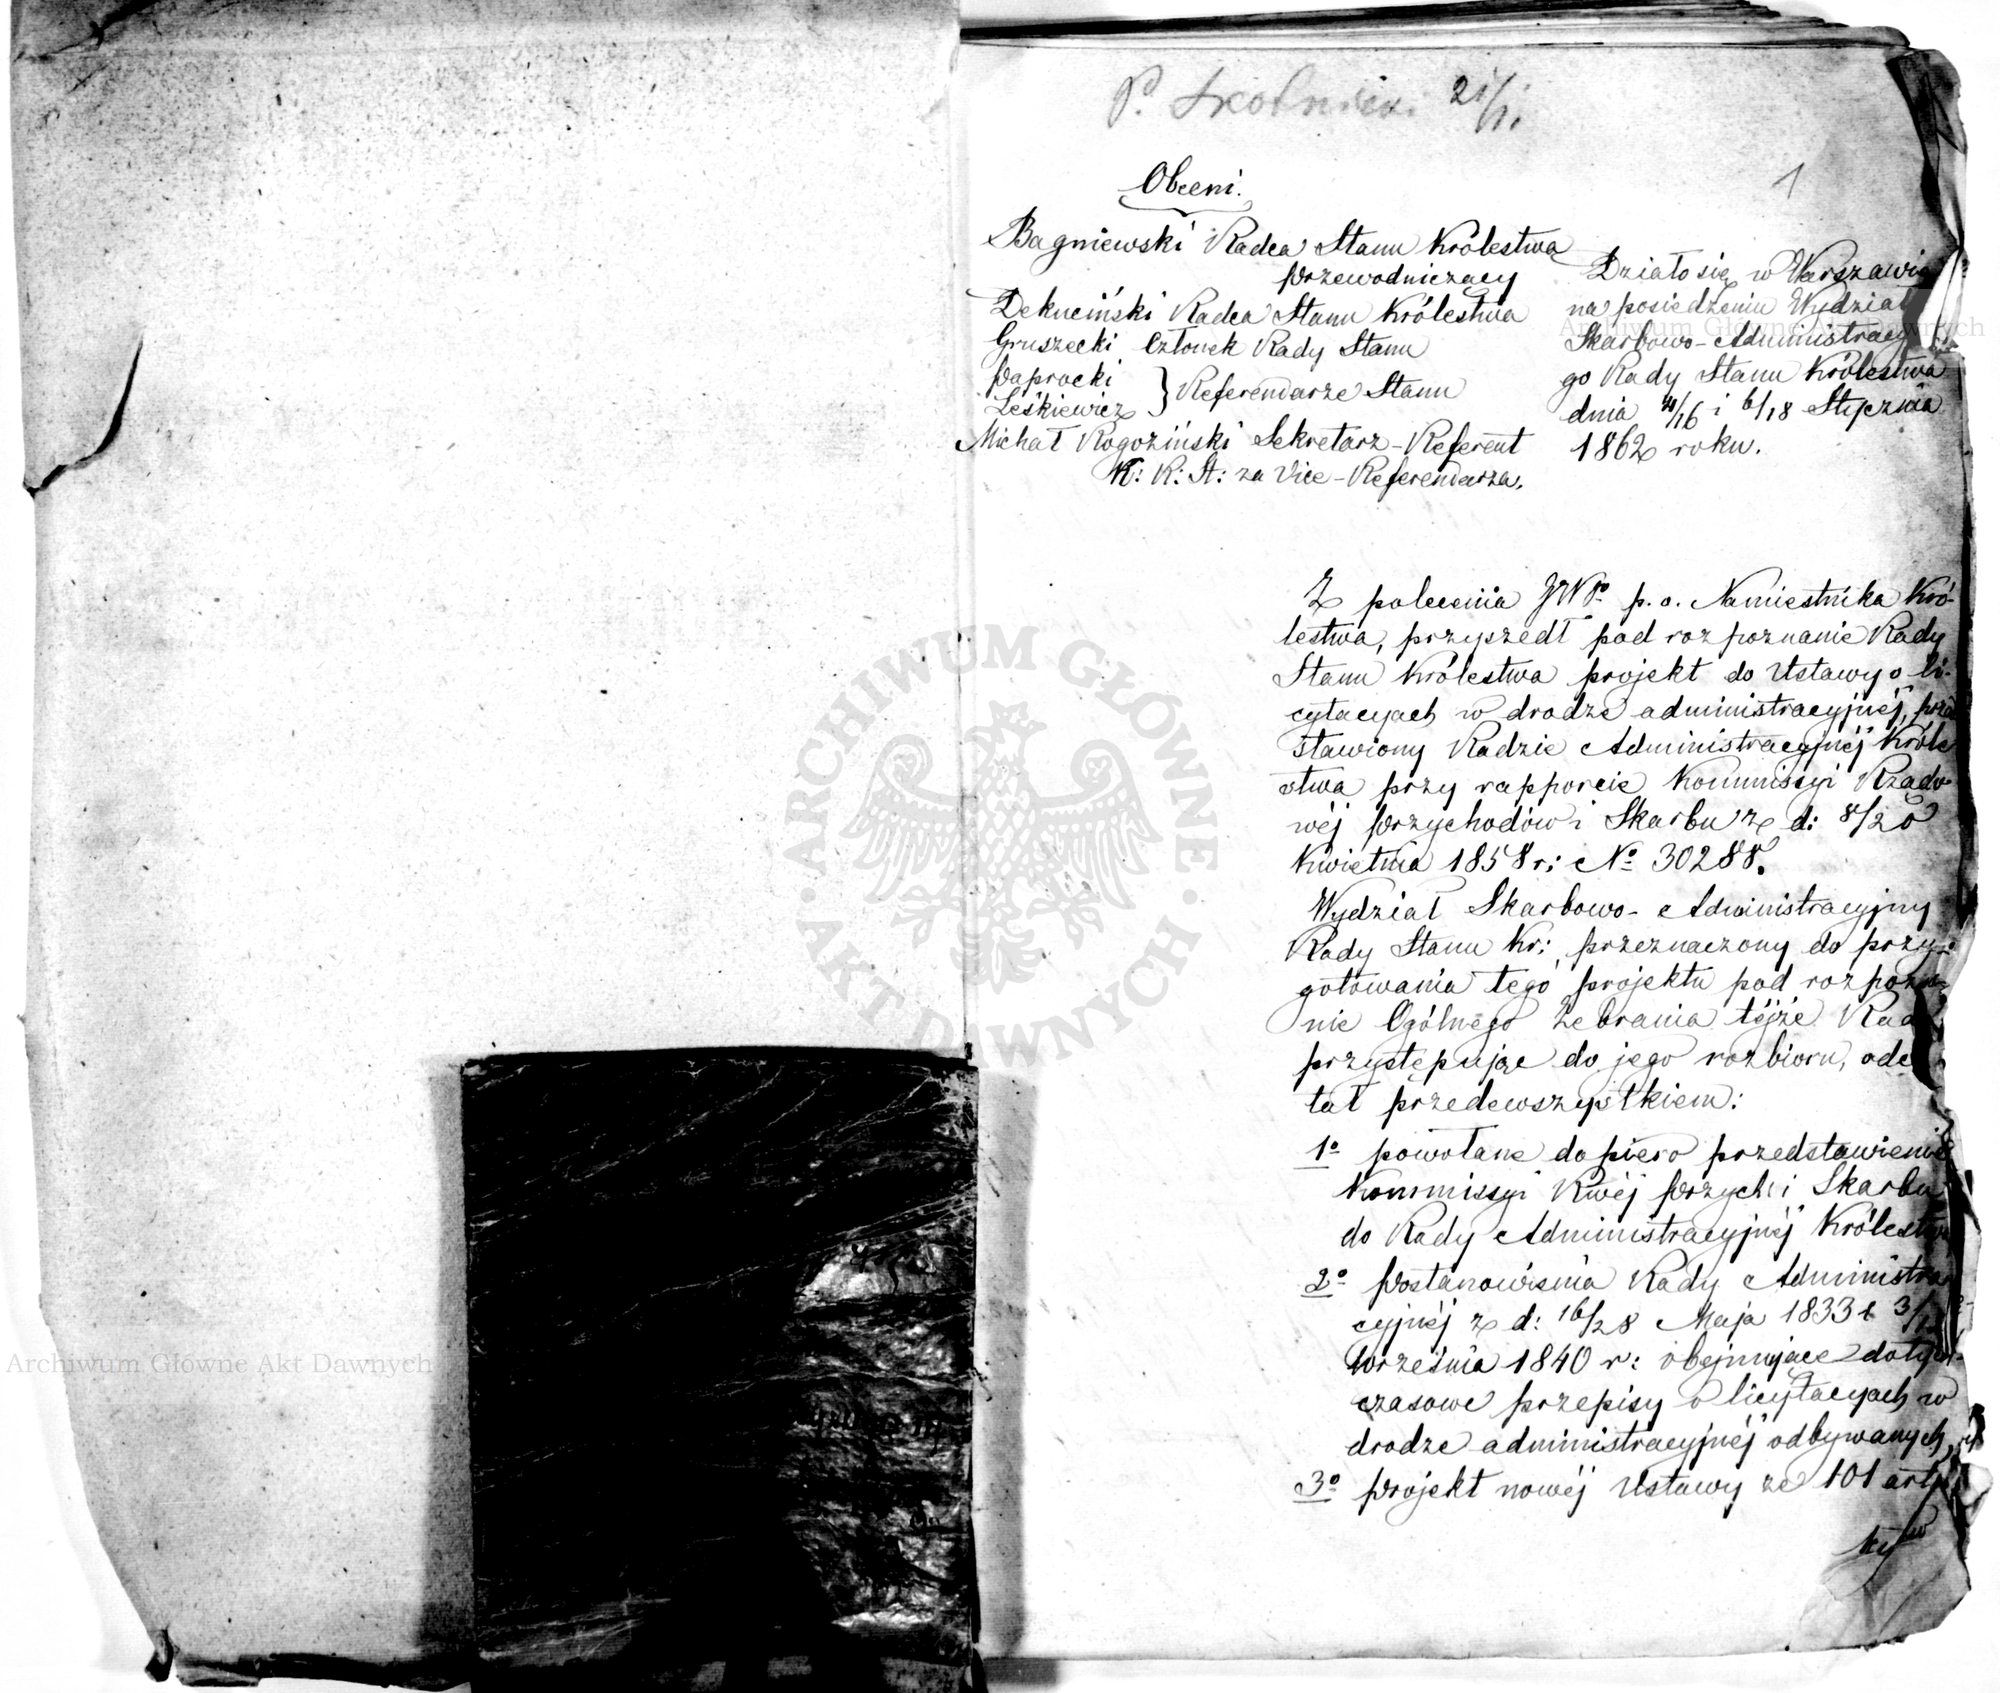 P. 21/1.
1
Obecni.
Bagniewski Radca Stanu Królestwa
Przewodniczący
Dekuciński Radca Stanu Królestwa
Gruszecki Członek Rady Stanu
Paprocki
Leśkiewicz } Referendarze Stanu
Michał Rogoziński Sekretarz-Referent
K: R: St: za Vice-Referendarza.
Działo się w Warszawie
na posiedzeniu Wydział
Skarbowo-Administracyj
go Rady Stanu Królestwa
dnia 4/16 i 6/18 Stycznia
1862 roku.
Z polecenia JWP. p. o. Namiestnika Kró-
lestwa, przyszedł pod rozpoznanie Rady
Stanu Królestwa projekt do Ustawy o li-
cytacyach w drodze administracyjnéj, prze
stawiony Radzie Administracyjnéj Króle
stwa przy rapporcie Kommissyi Rządo
wéj Przychodów i Skarbu z d: 8/20
Kwietnia 1858 r: No 30288.
Wydział Skarbowo-Administracyjny
Rady Stanu Kr: przeznaczony do przy-
gotowania tego projektu pod rozpozna-
nie Ogólnego Zebrania téjże Rad
przystępując do jego rozbioru, odc
tał przedewszystkiem:
1o powołane dopiero przedstawienie
Kommissyi Rwéj Przych: i Skarbu
do Rady Administracyjnéj Królestw
2o Postanowienia Rady Administra
cyjnéj z d: 16/28 Maja 1833 i 3/
Września 1840 r: obejmujące dotych-
czasowe przepisy o licytacyach w
drodze administracyjnéj odbywanych,
3o Projekt nowéj Ustawy ze 101 arty
kuł
Archiwum Główne Akt Dawnych
ARCHIWUM GŁÓWNE AKT DAWNYCH
Archiwum Główne Akt Dawnych